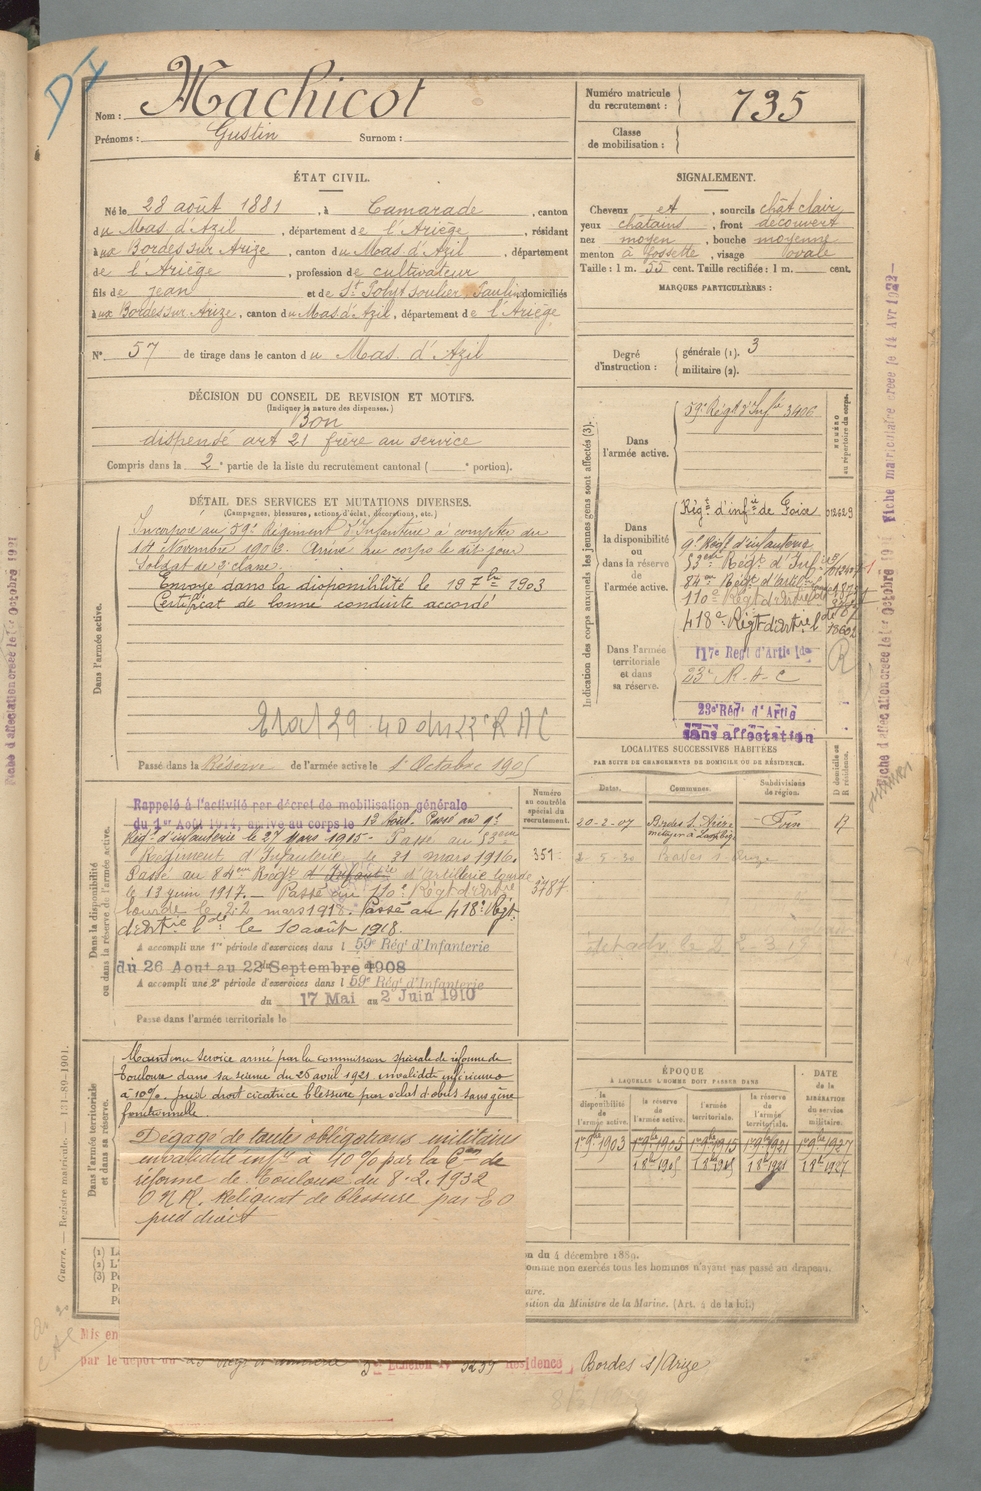 DI
Nom : Machicot
Prénoms : Gustin Surnom :
Numéro matricule
du recrutement : 735
Classe
de mobilisation :
ÉTAT CIVIL.
Né le 28 août 1881, à Camarade, canton
du Mas d'Azil, département de l'Ariège, résidant
à aux Bordes sur Arize, canton du Mas d'Azil, département
de l'Ariège, profession de cultivateur
fils de jean et de St Polyt soulier Paulin domiciliés
à aux Bordes sur Arize, canton du Mas d'Azil, département de l'Ariège
N° 57 de tirage dans le canton du Mas d'Azil
SIGNALEMENT.
Cheveux et, sourcils chât clair
yeux châtains, front découvert
nez moyen, bouche moyenne
menton à fossette, visage ovale
Taille : 1 m. 55 cent. Taille rectifiée : 1 m. cent.
MARQUES PARTICULIÈRES :
Degré
d'instruction :
générale (1). 3
militaire (2).
DÉCISION DU CONSEIL DE REVISION ET MOTIFS.
(Indiquer la nature des dispenses.)
Bon
dispensé art 21 frère au service
Compris dans la 2e partie de la liste du recrutement cantonal ( e portion).
DÉTAIL DES SERVICES ET MUTATIONS DIVERSES.
(Campagnes, blessures, actions d'éclat, décorations, etc.)
Dans l'armée active.
Incorporé au 59e Régiment d'Infanterie à compter du
14 Novembre 1902. Arrivé au corps le dit jour
Soldat de 2e classe.
Envoyé dans la disponibilité le 19 7bre 1903
Certificat de bonne conduite accordé
Passé dans la Réserve de l'armée active le 1er Octobre 1905
Indication des corps auxquels les jeunes gens sont affectés (3).
Dans
l'armée active.
59e Régt d'Infie 3406
NUMÉRO
au répertoire du corps.
Dans
la disponibilité
ou
dans la réserve
de
l'armée active.
Régt d'infie de Foix
9e Régt d'infanterie
53eme Régt d'Infie
84me Régt d'Artil
110e Régt d'Artie
418e Régt d'artie lde
Dans l'armée
territoriale
et dans
sa réserve.
117e Régt d'Artie lde
23e R.A.C
23e Régt d'Artie
Sans affectation
R
LOCALITÉS SUCCESSIVES HABITÉES
PAR SUITE DE CHANGEMENTS DE DOMICILE OU DE RÉSIDENCE.
Dates. Communes. Subdivisions
de région. D domicile ou
R résidence.
20-2-07 Foix
Dans la disponibilité
ou dans la réserve de l'armée active.
Numéro
au contrôle
spécial du
recrutement.
351
3787
Rappelé à l'activité par décret de mobilisation générale
du 1er Août 1914, arrivé au corps le 12 Aout. Passé au 9e
Régt d'infanterie le 27 Mars 1915 - Passé au 53eme
Régiment d'Infanterie le 31 mars 1916.
Passé au 84eme Régt d'Infanterie d'Artillerie lourde
le 13 juin 1917. - Passé au 110e Régt d'artie
lourde le 22 mars 1918. Passé au 418e Régt
d'artie lde le 10 août 1918.
A accompli une 1re période d'exercices dans l 59e Régt d'Infanterie
du 26 Aout au 22 Septembre 1908
A accompli une 2e période d'exercices dans l 59e Régt d'Infanterie
du 17 Mai au 2 Juin 1910
Passé dans l'armée territoriale le
Dans l'armée territoriale
et dans sa réserve.
Maintenu service armé par la commission spéciale de réforme de
Toulouse dans sa séance du 26 avril 1921 invalidité inférieure
à 10% pied droit cicatrice blessure par éclat d'obus sans gêne
fonctionnelle.
Dégagé de toutes obligations militaires
invalidité infre à 10% par la Con de
réforme de Toulouse du 8.2.1932
O N R. Reliquat de blessure par E O
pied droit
ÉPOQUE
À LAQUELLE L'HOMME DOIT PASSER DANS
la
disponibilité
de
l'armée active. la réserve
de
l'armée active. l'armée
territoriale. la réserve
de
l'armée
territoriale. DATE
de la
LIBÉRATION
du service
militaire.
1er 9bre 1903 1er 9bre 1905 1er 9bre 1915 1er 9bre 1921 1er 9bre 1927
on du 4 décembre 1889.
omme non exercés tous les hommes n'ayant pas passé au drapeau.
sition du Ministre de la Marine. (Art. 4 de la loi.)
Mis en
par le dépôt du Echelon Résidence Bordes s/Arize
Guerre. — Registre matricule. 131-89-1901.
Fiche d'affectation créée le 1er Octobre 1921
Fiche matriculaire créée le 14 Avr 1922
Fiche d'affectation créée le 1er Octobre